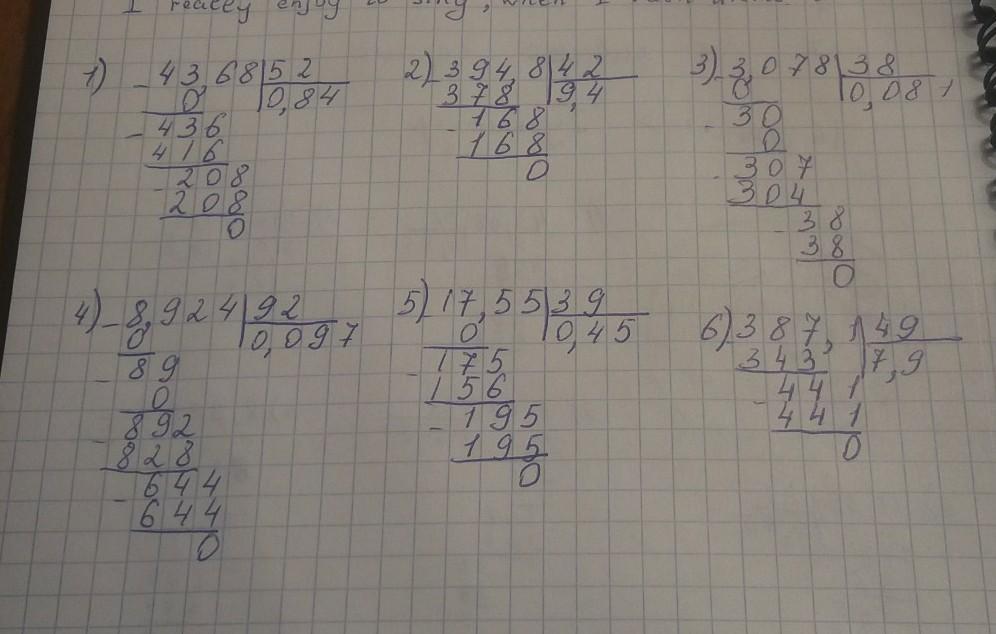 I really enjoy to sing, when I
1) - 43,68 | 52
0 | 0,84
- 436
416
- 208
208
0
2) - 394,8 | 42
378 | 9,4
- 168
168
0
3) - 3,078 | 38
0 | 0,081
- 30
0
- 307
304
- 38
38
0
4) - 8,924 | 92
0 | 0,097
- 89
0
- 892
828
- 644
644
0
5) 17,55 | 39
0 | 0,45
- 175
156
- 195
195
0
6) 387,1 | 49
343 | 7,9
- 441
441
0